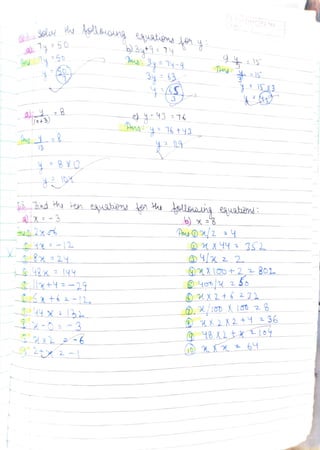 Solve the following equations for y:
a) 7y = 50
Ans: 7y = 50
y = 50/7
b) 3y + 9 = 74
Ans: 3y = 74 - 9
3y = 63
y = 65/3
y/3 = 15
y/3 = 15
y = 15 x 3
d) y/(10+3) = 8
Ans: y/13 = 8
y = 8 x
y = 104
e) y - 43 = 76
Ans: y = 76 + 43
y = 119
Find the ten equations for the following equations:
a) x = -3
2x
4x = -12
8x = 24
48x = 144
11x + 4 = -29
5x + 6 = -12
44x = 132
x - 0 = -3
x x 2 = -6
2 + x = -1
b) x = 8
Ans ① x/2 = 4
② x x 44 = 352
③ 4/x = 2
④ x x 100 + 2 = 802
⑤ 400/x = 50
⑥ x x 2 + 6 = 22
⑦ x/100 x 100 = 8
⑧ x x 2 x 2 + 4 = 36
⑨ 48 x 2 + x = 104
⑩ x x x = 64